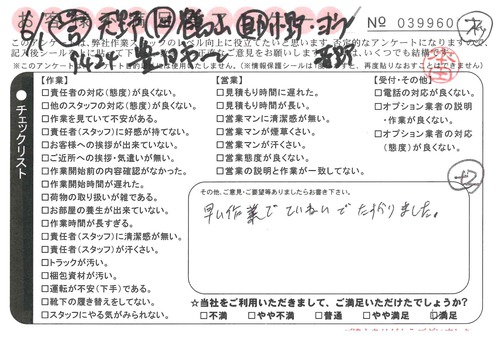 No 039960
このアンケートは、弊社作業スタッフのレベル向上に役立たせたいと思います。否定的なアンケートになりますので、
チェックリスト
【作業】
□責任者の対応(態度)が良くない。
□他のスタッフの対応(態度)が良くない。
□作業を見ていて不安がある。
□責任者(スタッフ)に好感が持てない。
□お客様への挨拶が出来ていない。
□ご近所への挨拶・気遣いが無い。
□作業開始前の内容確認がなかった。
□作業開始時間が遅れた。
□荷物の取り扱いが雑である。
□お部屋の養生が出来ていない。
□作業時間が長すぎる。
□責任者(スタッフ)に清潔感が無い。
□責任者(スタッフ)が汗くさい。
□トラックが汚い。
□梱包資材が汚い。
□運転が不安(下手)である。
□靴下の履き替えをしてない。
□スタッフにやる気がみられない。
【営業】
□見積もり時間に遅れた。
□見積もり時間が長い。
□営業マンに清潔感が無い。
□営業マンが煙草くさい。
□営業マンが汗くさい。
□営業態度が良くない。
□営業の説明と作業が一致してない。
【受付・その他】
□電話の対応が良くない。
□オプション業者の説明
・作業が良くない。
□オプション業者の対応
(態度)が良くない。
その他、ご意見・ご要望等ありましたらお書き下さい。
早い作業で ていねいで たすかりました。
☆当社をご利用いただきまして、ご満足いただけたでしょうか?
□不満 □やや不満 □普通 □やや満足 □満足